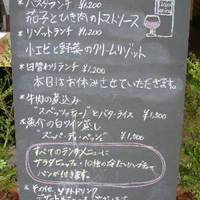 * パスタランチ ¥1,200
茄子とひき肉のトマトソース
* リゾットランチ ¥1,200
小エビと野菜のクリームリゾット
* 日替わりランチ ¥1,200
本日はお休みさせていただきます。
* 牛肉の煮込み
"スペッツァティーノ"とバターライス ¥1,500
* 魚介の白ワイン蒸し
"ズッパ・ディ・ペッシェ" ¥1,500
すべてのランチメニューに
サラダビュッフェ・10種の
パンが付きます。
* その他、ソフトドリンク
デザートメニュー